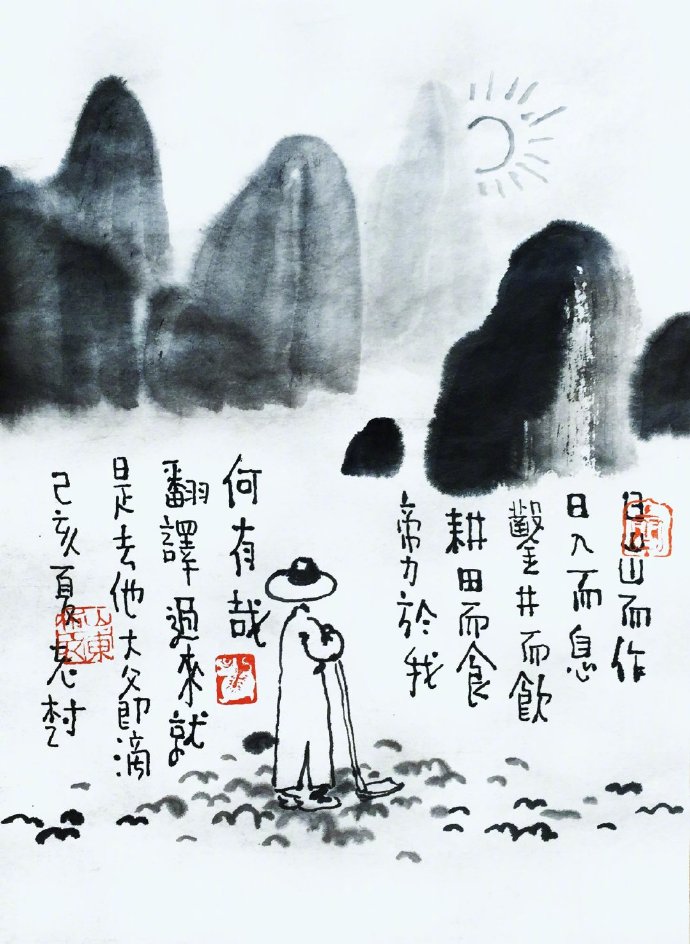 日出而作
日入而息
鑿井而飲
耕田而食
帝力於我
何有哉
翻譯過來就
是去他大爺滴
己亥夏老